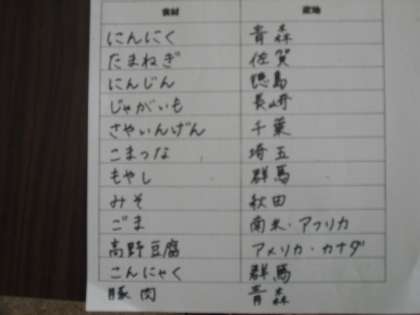 食材 産地
にんにく 青森
たまねぎ 佐賀
にんじん 徳島
じゃがいも 長崎
さやいんげん 千葉
こまつな 埼玉
もやし 群馬
みそ 秋田
ごま 南米・アフリカ
高野豆腐 アメリカ・カナダ
こんにゃく 群馬
豚肉 青森